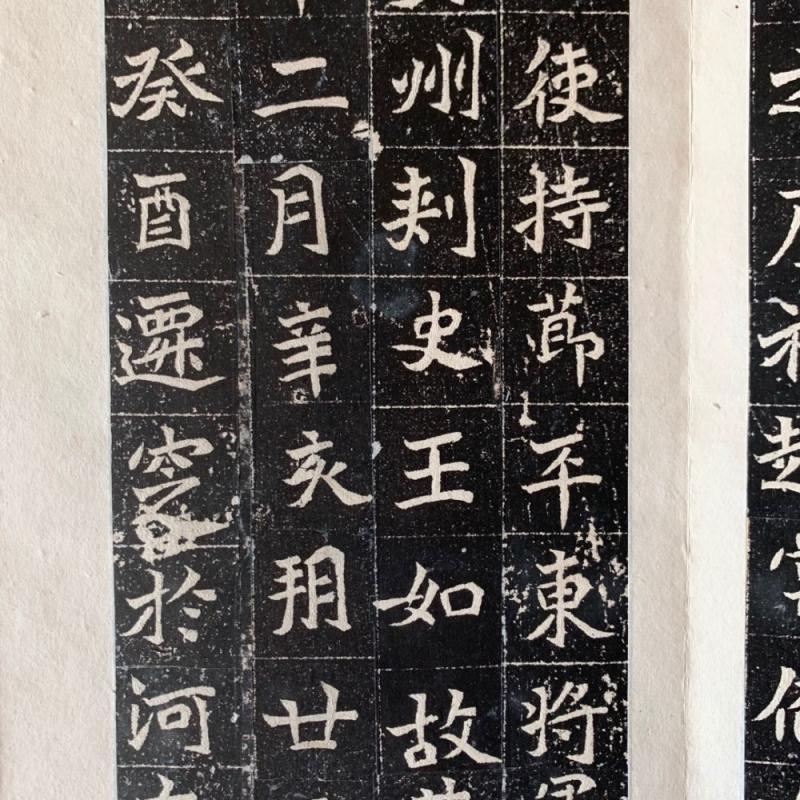 使持莭平東將
州刾史王如故
二月辛亥朔廿
癸酉遷窆於河